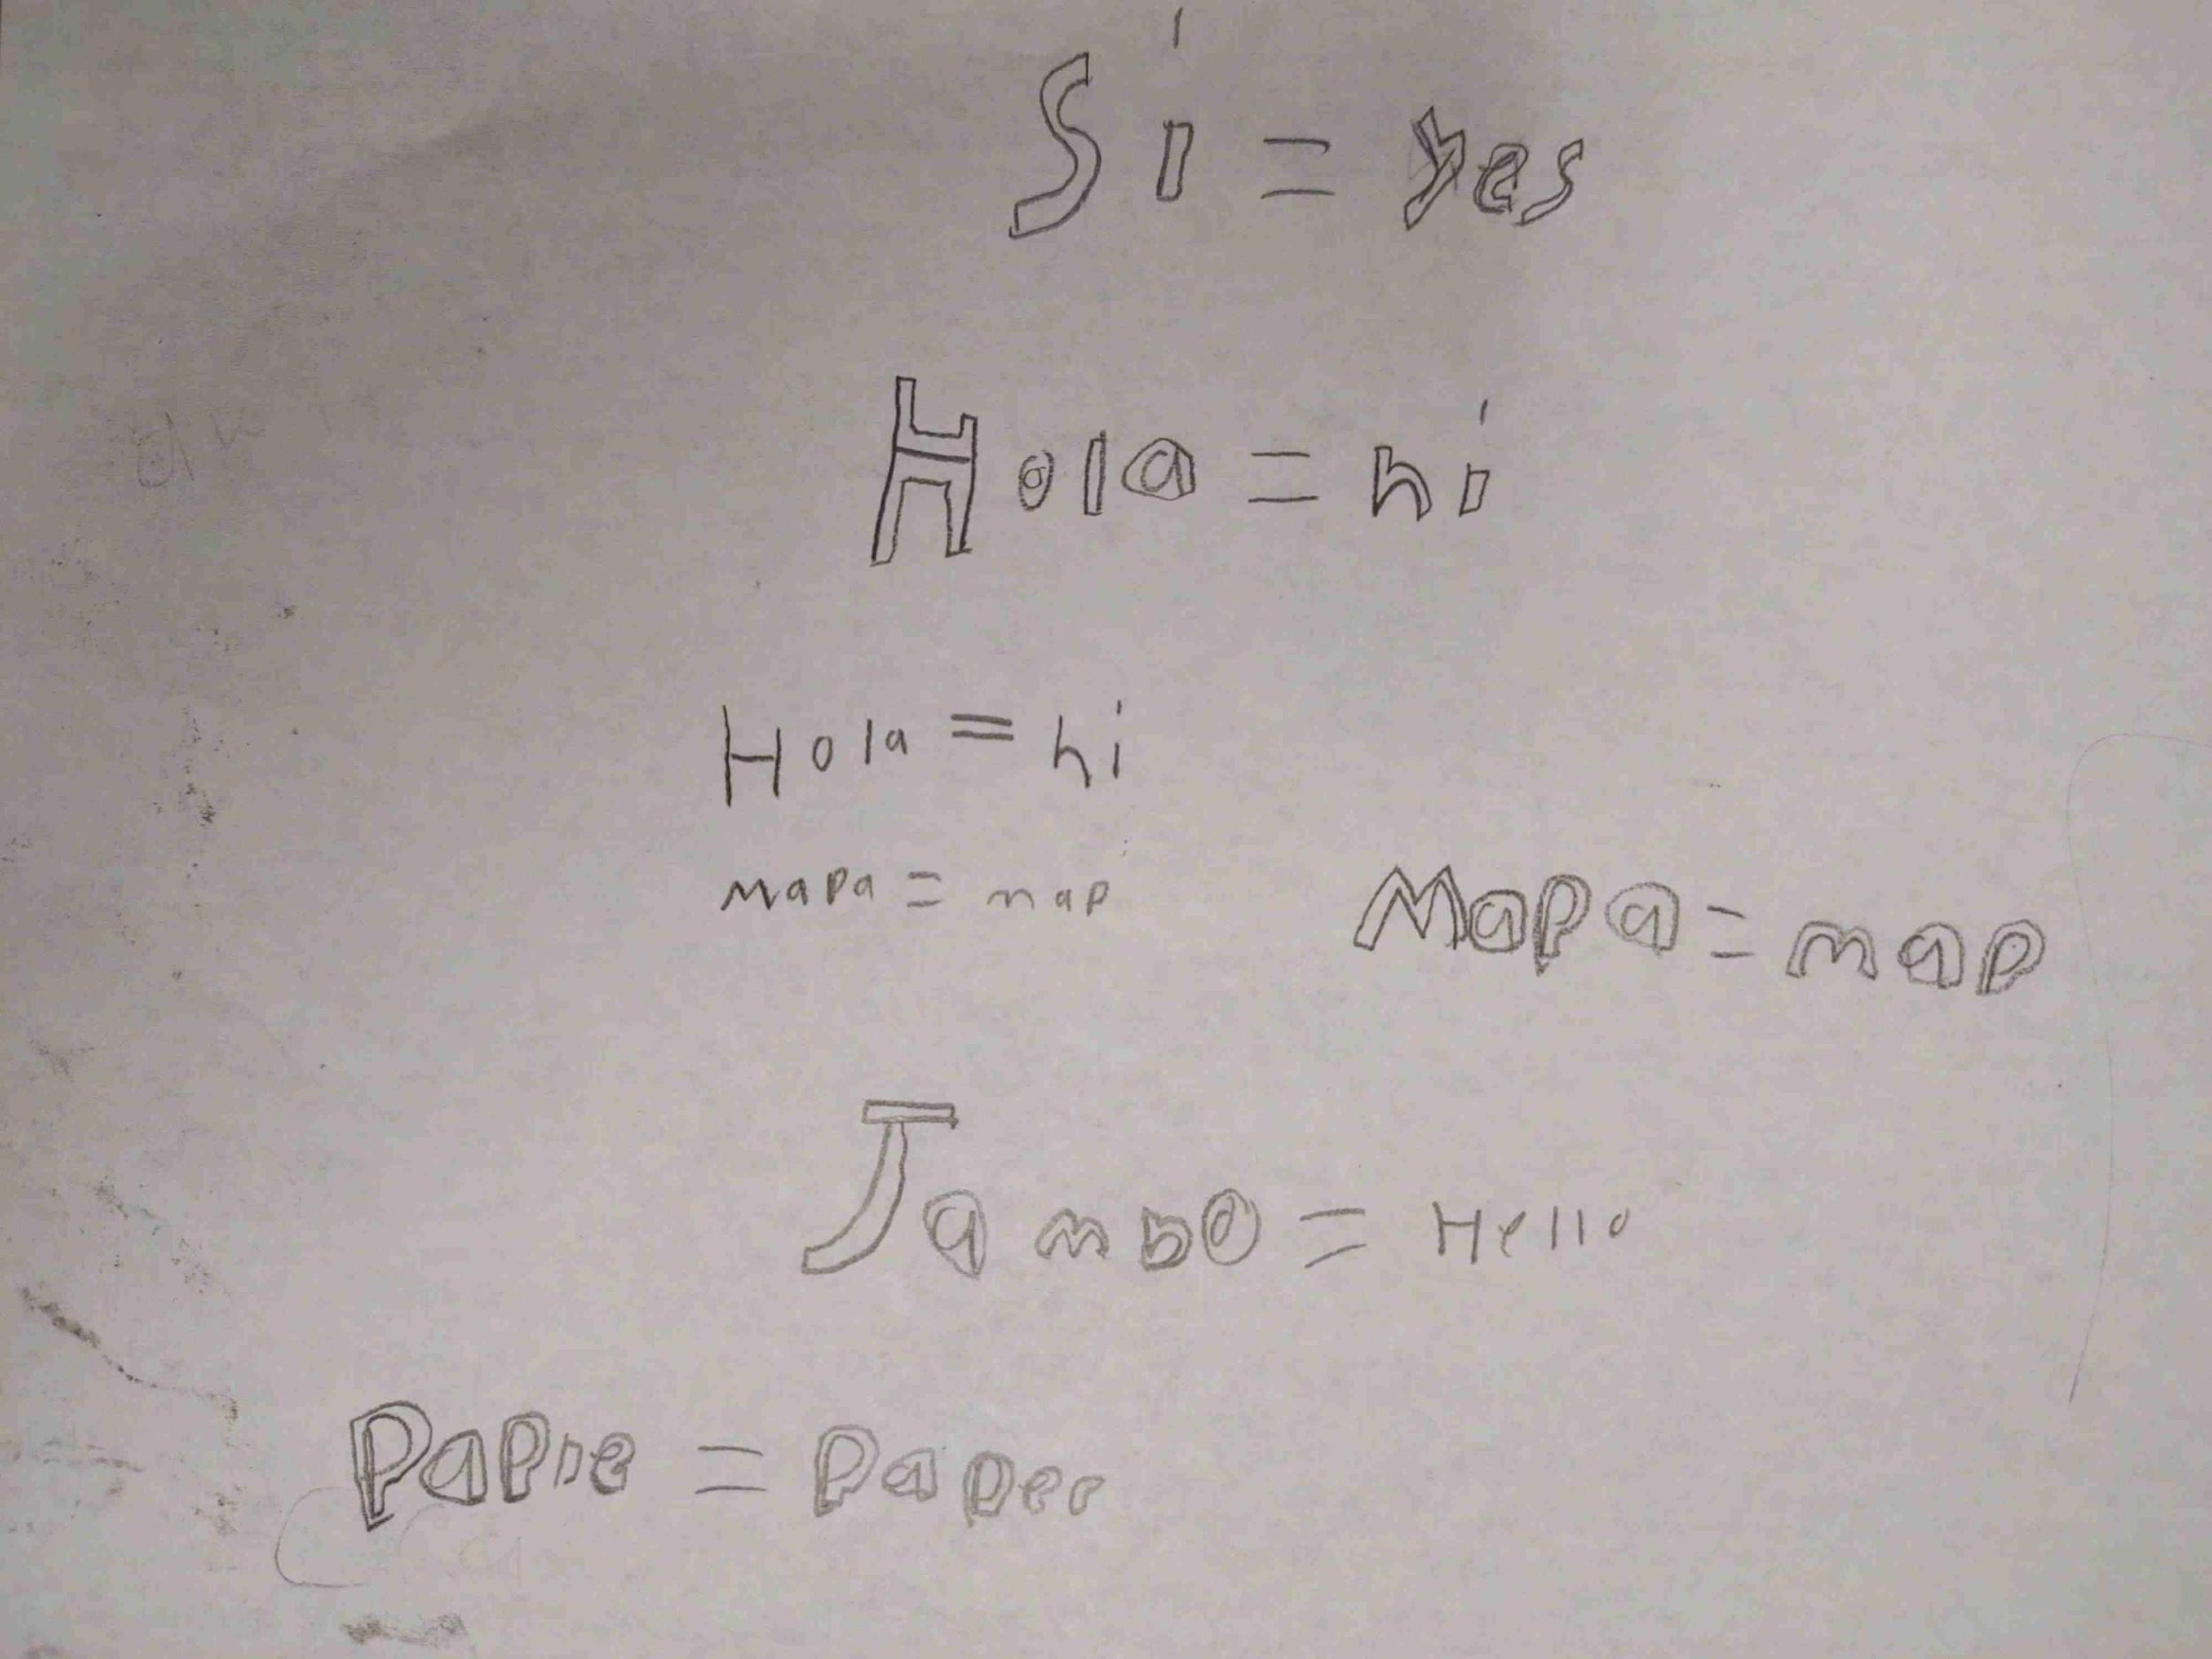 Si = yes
Hola = hi
Hola = hi
Mapa = map
Mapa = map
Jambo = Hello
Papie = Paper